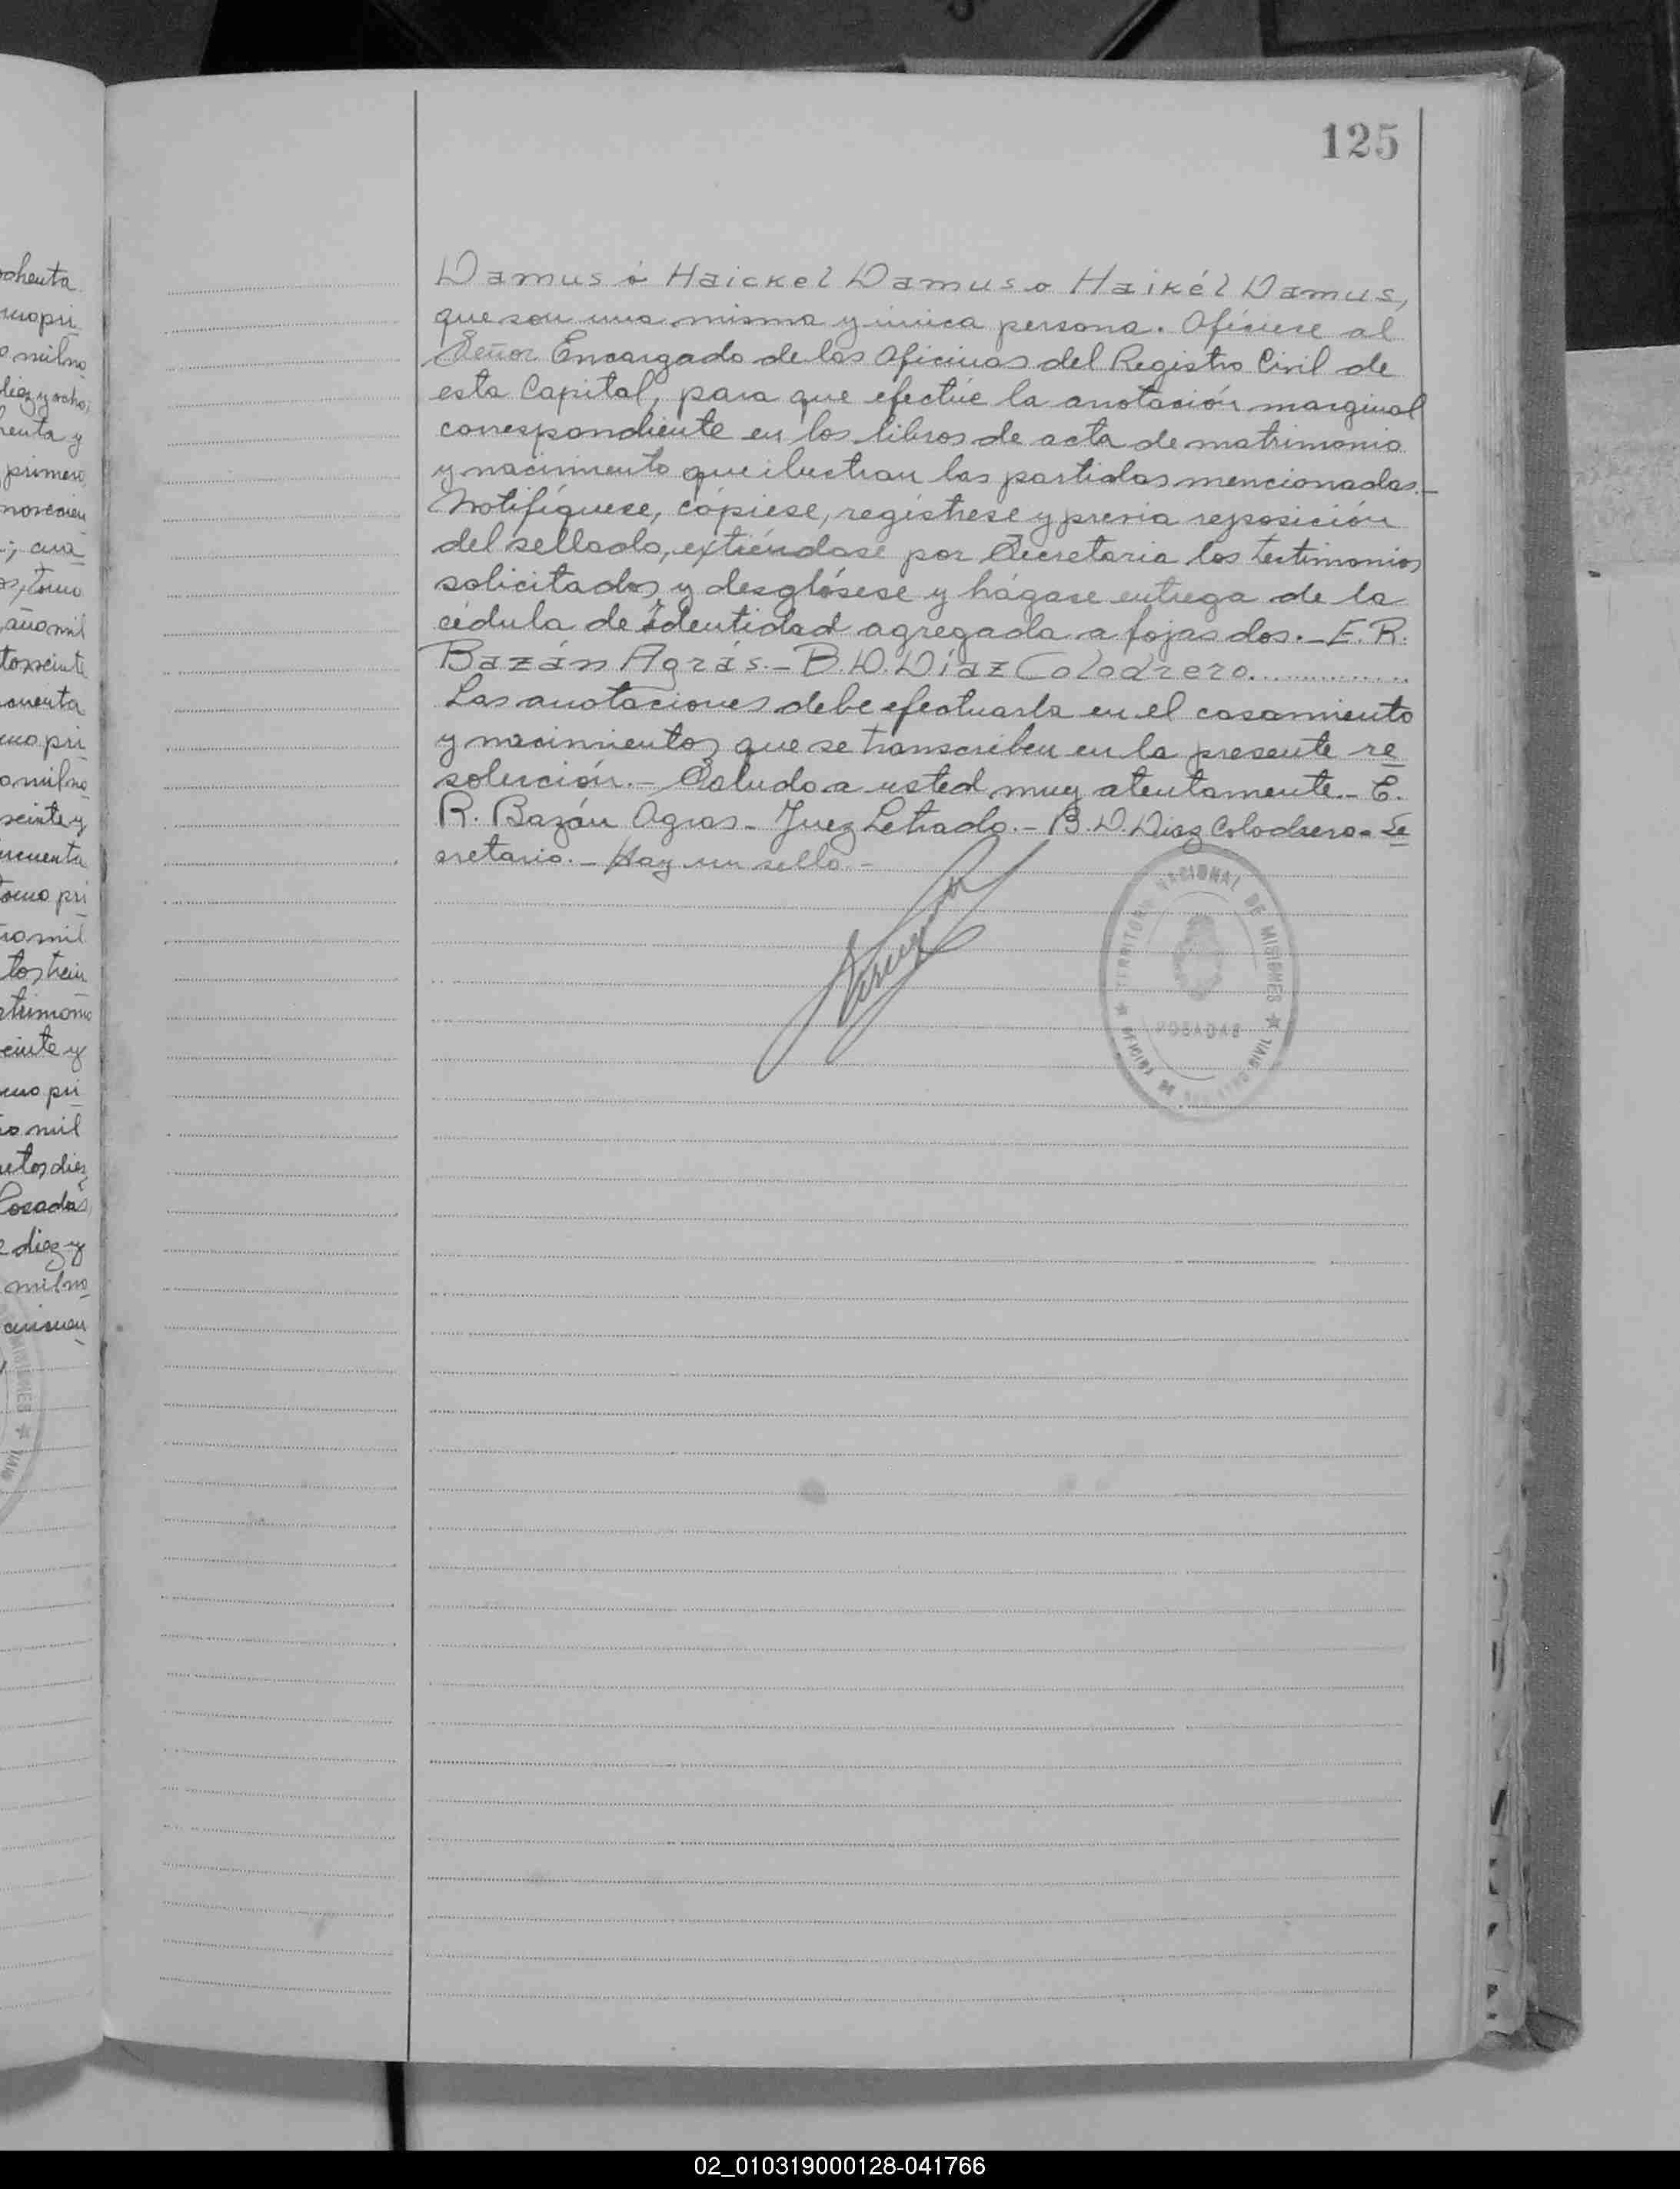 125
Damus ó Haickel Damus o Haikél Damus,
que son una misma y única persona. Ofíciese al
Señor Encargado de las Oficinas del Registro Civil de
esta Capital, para que efectúe la anotación marginal
correspondiente en los libros de acta de matrimonio
y nacimiento que ilustran las partidas mencionadas.-
Notifíquese, cópiese, regístrese y previa reposición
del sellado, extiéndase por Secretaria los testimonios
solicitados y desglósese y hágase entrega de la
cédula de Identidad agregada a fojas dos.- E. R.
Bazán Agrás.- B. D. Díaz Colodrero..............
Las anotaciones debe efectuarla en el casamiento
y nacimientos que se transcriben en la presente re
solución.- Saludo a usted muy atentamente.- E.
R. Bazán Agras.- Juez Letrado.- B. D. Diaz Colodrero.- Se
cretario.- Hay un sello.-
TERRITORIO NACIONAL DE MISIONES
POSADAS
OFICINA DE CIVIL
ochenta
mo pri
o milno
diez y ocho,
henta y
primero,
novecien
.; cua
os, tomo
, año mil
to veinte
cuenta
mo pri
o milno
veinte y
cincuenta
tomo pri
ño mil
tos trein
atrimonio
veinte y
omo pri
ño mil
entos diez
Posadas,
e diez y
milno
cincuen
MISIONES
CIVIL
02_010319000128-041766